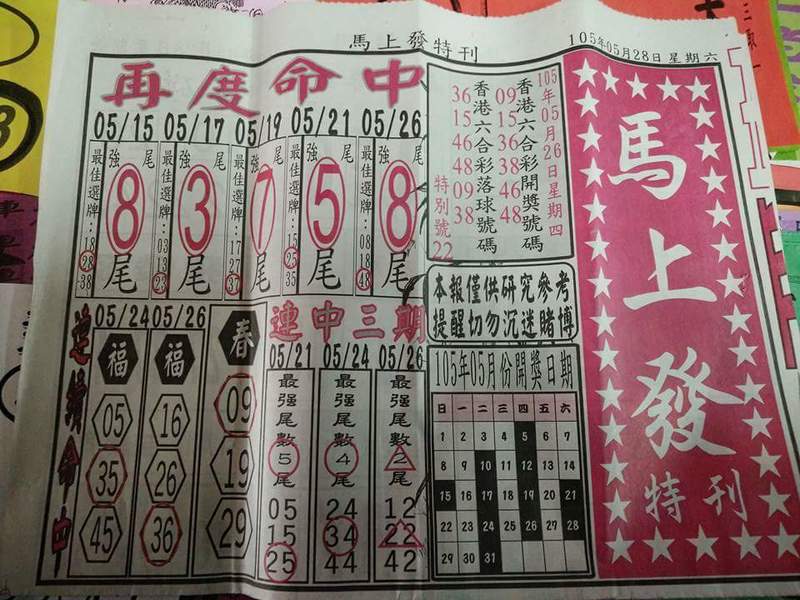 馬上發特刊
105年05月28日星期六
再度命中
05/15 05/17 05/19 05/21 05/26
強尾
8尾
最佳選牌:18 28 38
強尾
3尾
最佳選牌:03 13 23
尾
7尾
最佳選牌:17 27 37
強尾
5尾
最佳選牌:15 25 35
強尾
8尾
最佳選牌:08 18 48
105年05月26日星期四
香港六合彩開獎號碼
09 15 36 38 46 48
香港六合彩落球號碼
36 15 46 48 09 38
特別號
22
本報僅供研究參考
提醒切勿沉迷賭博
連續命中
05/24 05/26
福
05
35
45
福
16
26
36
春
09
19
29
連中三期
05/21 05/24 05/26
最强尾數5尾
05
15
25
最强尾數4尾
24
34
44
最强尾數2尾
12
22
42
105年05月份開獎日期
日 一 二 三 四 五 六
1 2 3 4 5 6 7
8 9 10 11 12 13 14
15 16 17 18 19 20 21
22 23 24 25 26 27 28
29 30 31
馬上發
特刊